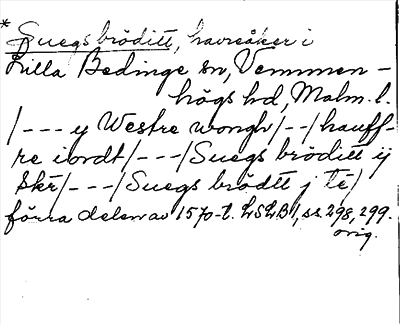 * Suegs bröditt, havreåker i
Lilla Bedinge sn, Vemmen-
högs hd, Malm. l.
/--- y Westre wongh/--/hauff-
re iordt/---/Suegs bröditt ij
Skr/---/Suegs brödtt j te/
förra delen av 1570-t. LSLB 1, ss. 298, 299.
orig.